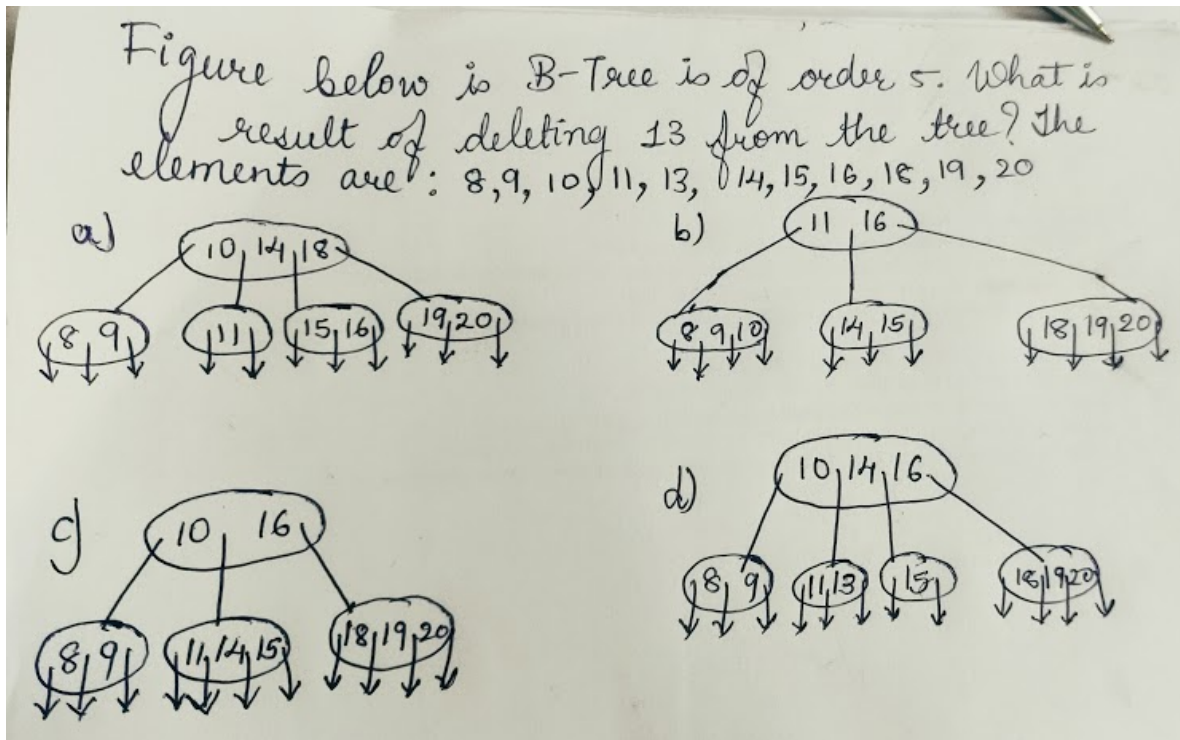 Figure below is B-Tree is of order 5. What is
result of deleting 13 from the tree? The
elements are : 8,9, 10, 11, 13, 14, 15, 16, 18, 19, 20
a)
10 14 18
8 9 11 15 16 19 20
b)
11 16
8 9 10 14 15 18 19 20
c)
10 16
8 9 11 14 15 18 19 20
d)
10 14 16
8 9 11 13 15 18 19 20